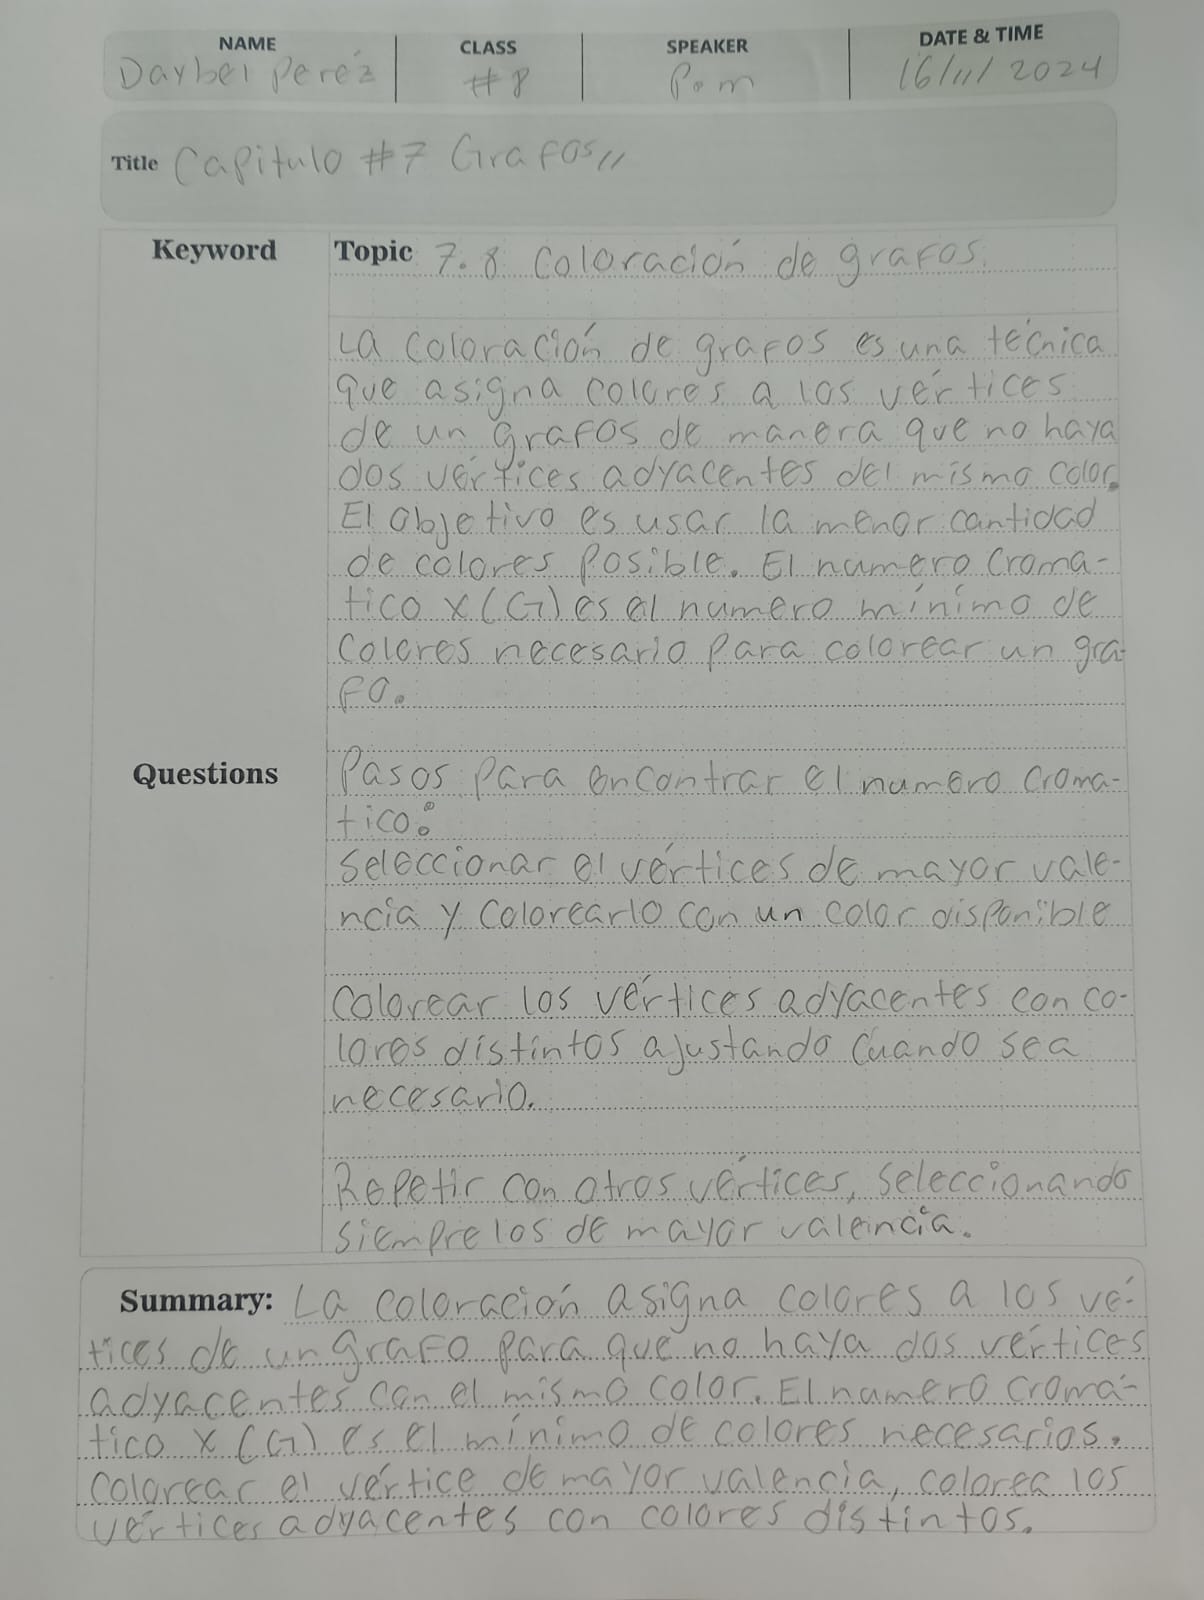 NAME CLASS SPEAKER DATE & TIME
Daybel Peréz #8 P.m 16/11/2024
Title Capitulo #7 Grafos //
Keyword Topic 7.8 Coloración de grafos.
La coloración de grafos es una técnica
que asigna colores a los vértices
de un grafos de manera que no haya
dos vértices adyacentes del mismo color.
El objetivo es usar la menor cantidad
de colores posible. El numero Croma-
tico X(G) es el numero mínimo de
Colores necesario para colorear un gra-
fo.
Questions Pasos para encontrar el numero croma-
tico:
Seleccionar el vértices de mayor vale-
ncia y Colorearlo con un color disponible
Colorear los vértices adyacentes con co-
lores distintos ajustando Cuando sea
necesario.
Repetir con otros vértices, seleccionando
siempre los de mayor valeincia.
Summary: La coloración asigna colores a los vé-
tices de un grafo para que no haya dos vértices
adyacentes con el mismo color. El numero croma-
tico X (G) es el mínimo de colores necesarios.
Colorear el vértice de mayor valencia, colorea los
vértices adyacentes con colores distintos.